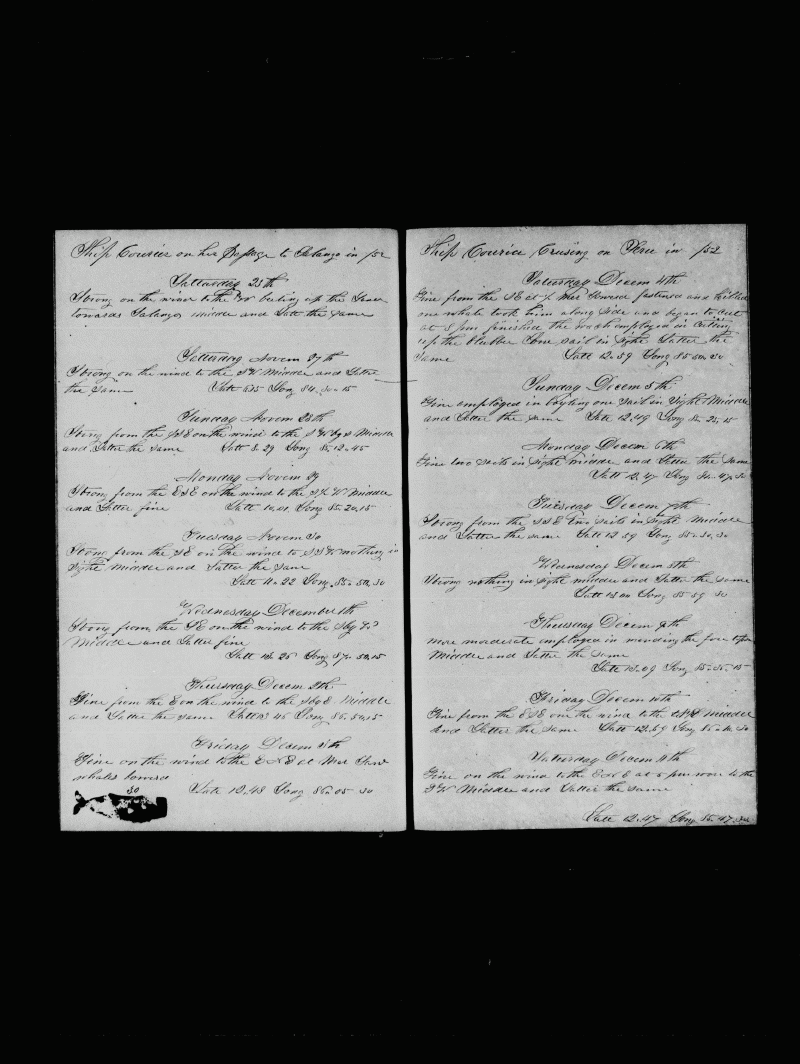 Ship Courier on her Passage to Salango in /52
Satturday 25th
Strong on the wind to the beeting up the
towards Salango middle and Latt the same
Satturday Novem 27th
Strong on the wind to the SW Middle and Latter
the same Latt Long 84..30-15
Sunday Novem 28th
Strong from the on the wind to the SW by S Middle
and Latter the same Latt 8.29 Long 85.12.45
Monday Novem 29
Strong from the ESE on the wind to the Middle
and Latter fine Latt 10.01 Long 85.20.15
Tuesday Novem 30
Strong from the SE on the wind to SSW nothing in
sight middle and Latter the same
Latt 11.22 Long 85.50.30
Wednesday December 1th
Strong from the SE on the wind to the
Middle and Latter fine
Latt 12.25 Long 87.50.15
Thursday Decem 2th
Fine from the E on the wind to the S by E Middle
and Latter the same Latt 13 45 Long 86.50.15
Friday Decem 3th
Fine on the wind to the
whales lowerd
30 Latt 12.48 Long 86.05 30
Ship Courier Crusing on Peru in /52
Saturday Decem 4th
Fine from the SE lowerd fastened and killed
one whale took him along side and began to cut
at 5 pm finished the employed in cutting
up the blubber one sail in sight Latter the
same Latt 12.59 Long 85.50.30
Sunday Decem 5th
Fine employed in boyling one sail in sight Middle
and Latter the same Latt 12.49 Long 85.25.15
Monday Decem 6th
Fine two sails in sight middle and Latter the same
Latt 12.47 Long 84.47.30
Tuesday Decem 7th
Strong from the SSE two sails in sight Middle
and Latter the same Latt 12 59 Long 85.30.30
Wednesday Decem 8th
Strong nothing in sight middle and Latter the same
Latt 13 00 Long 85 59 30
Thursday Decem 9th
more moderate employed in mending the fore
Middle and Latter the same
Latt 13.09 Long 85.35.15
Friday Decem 10th
Fine from the ESE on the wind to the Middle
and Latter the same Latt 12.59 Long 30
Satturday Decem 11th
Fine on the wind to the at 5 pm to the
SW Middle and Latter the same
Latt 12.47 Long 85.47.30